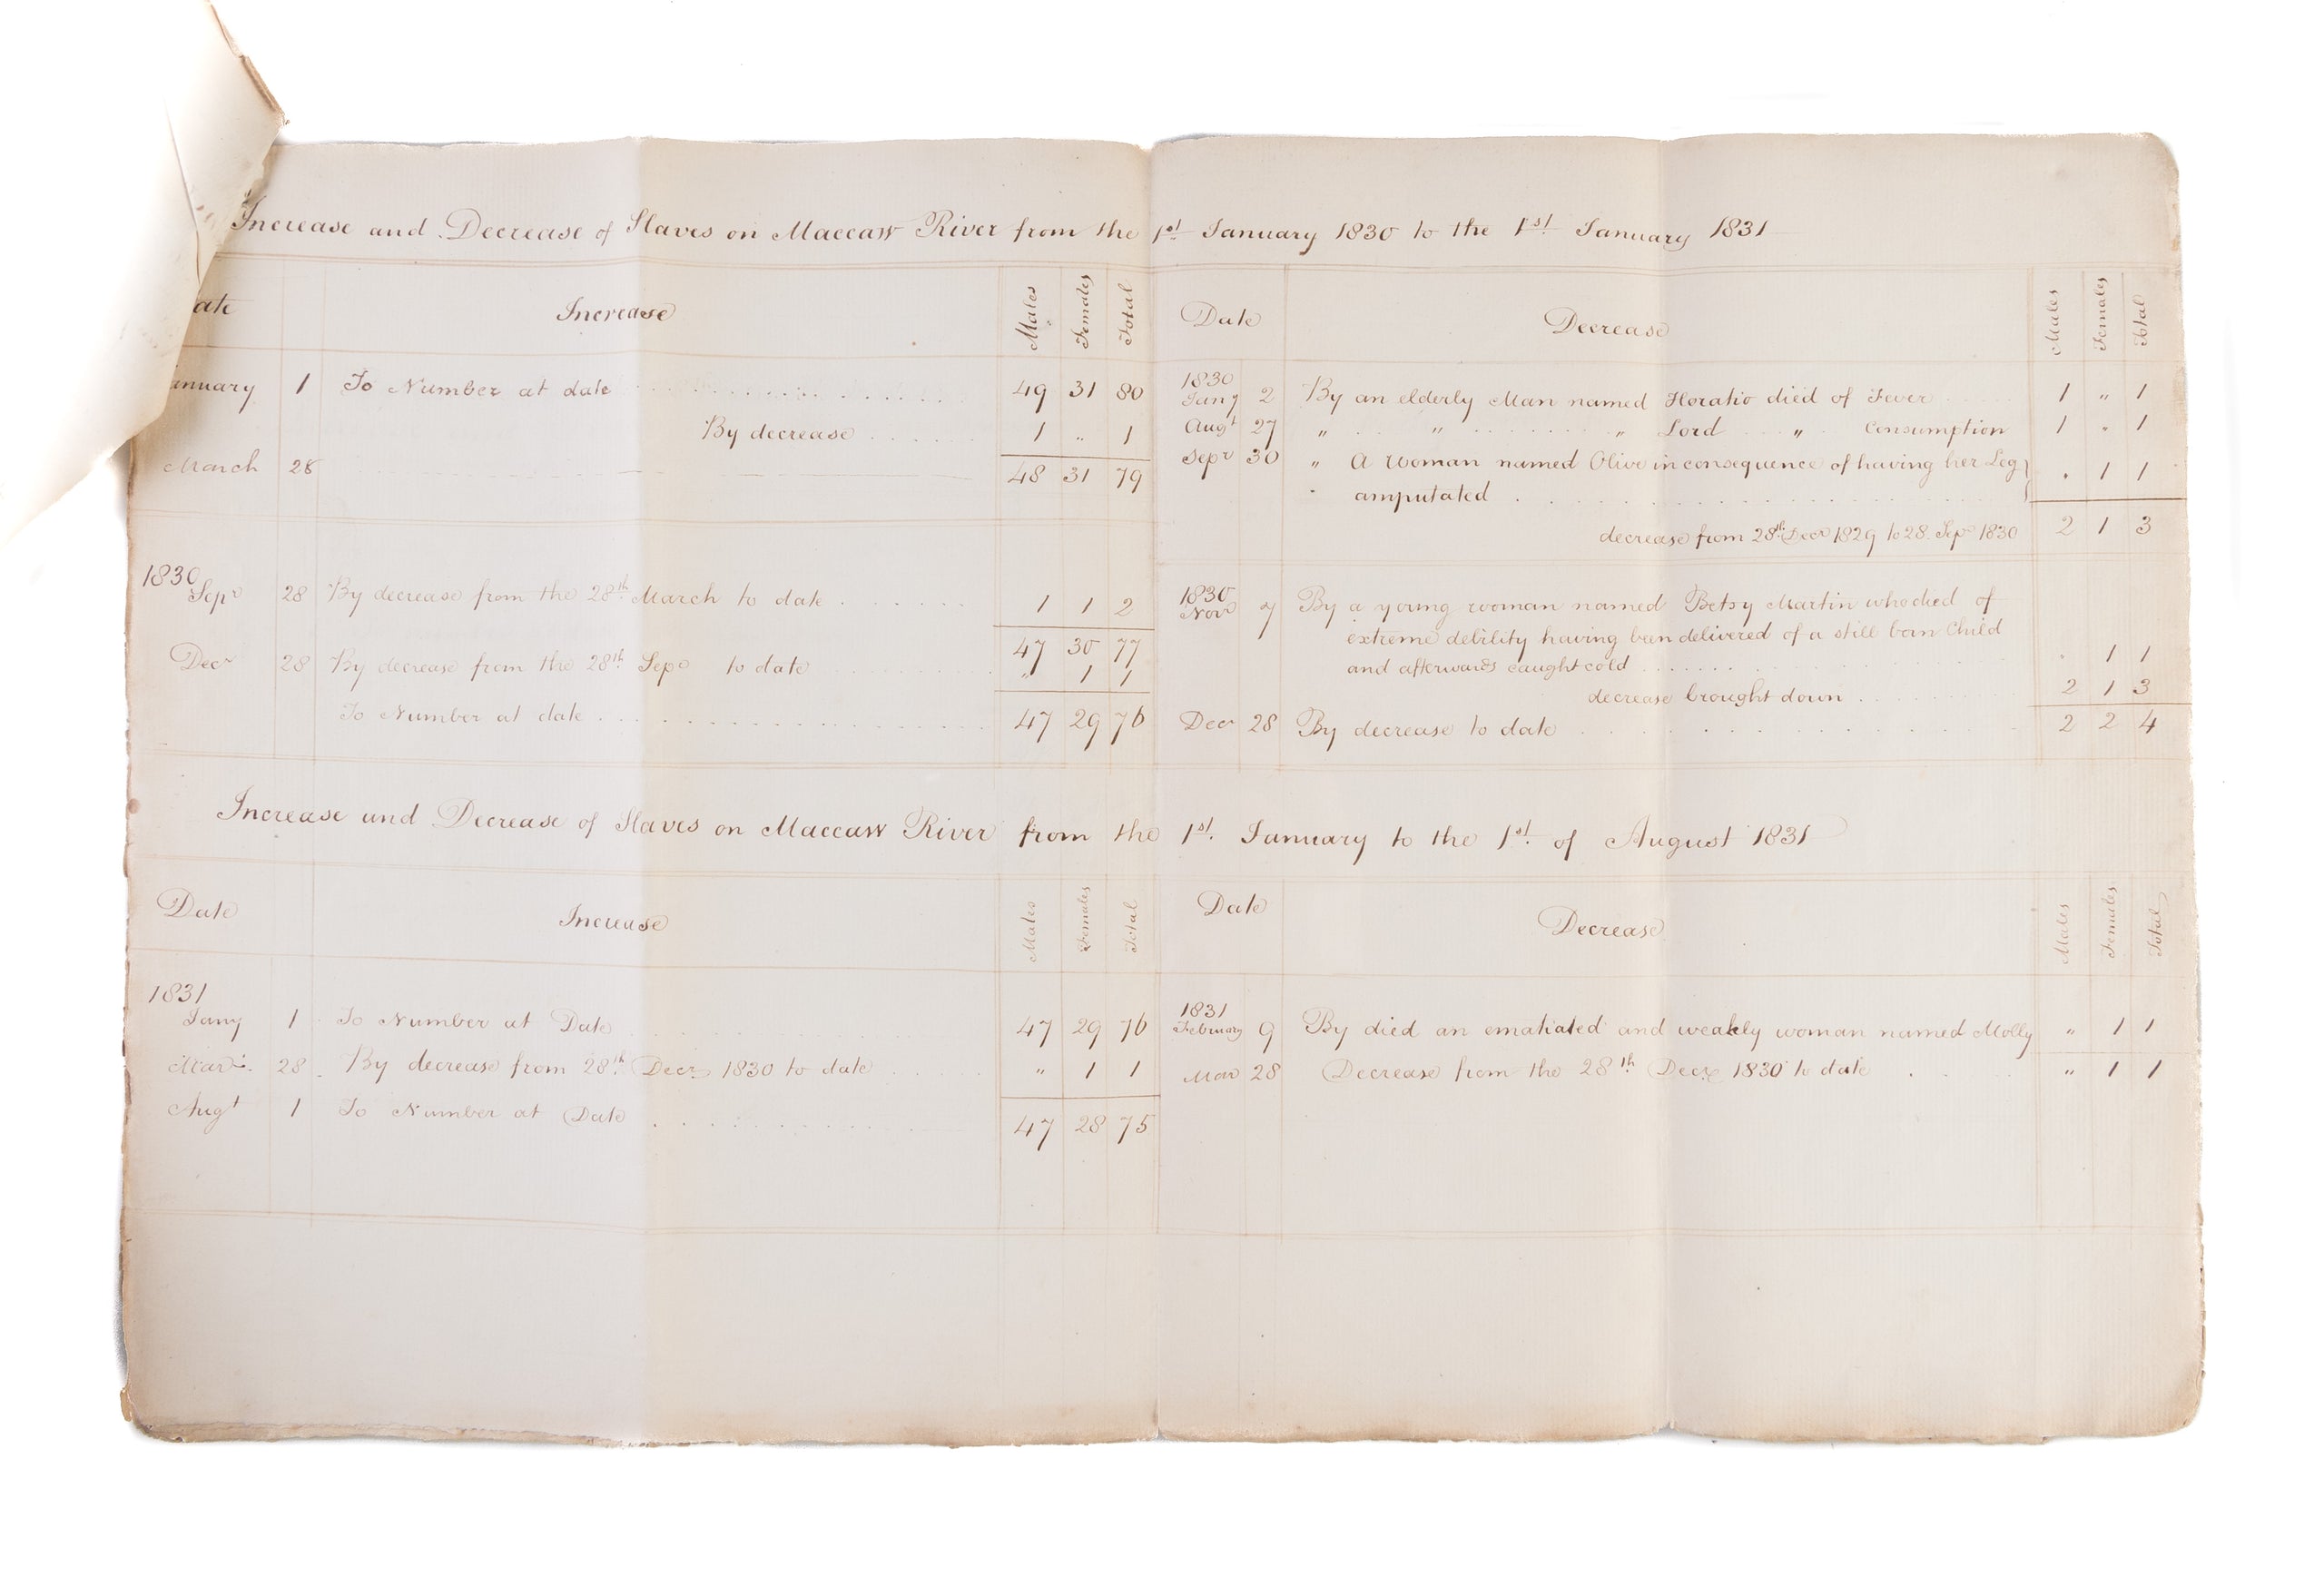 Increase and Decrease of Slaves on Maccaw River from the 1st January 1830 to the 1st January 1831
ate Increase Males Females Total
anuary 1 To Number at date 49 31 80
By decrease 1 " 1
March 28 48 31 79
1830
Sepr 28 By decrease from the 28th March to date 1 1 2
47 30 77
Decr 28 By decrease from the 28th Sepr to date " 1 1
To Number at date 47 29 76
Date Decrease Males Females Total
1830
Jany 2 By an elderly Man named Horatio died of Fever 1 " 1
Augt 27 " " " Lord " Consumption 1 " 1
Sepr 30 " A Woman named Olive in consequence of having her Leg
amputated " 1 1
decrease from 28th Decr 1829 to 28 Sepr 1830 2 1 3
1830
Novr 7 By a young woman named Betsy Martin who died of
extreme debility having been delivered of a still born Child
and afterwards caught cold " 1 1
decrease brought down 2 1 3
Decr 28 By decrease to date 2 2 4
Increase and Decrease of Slaves on Maccaw River from the 1st January to the 1st of August 1831
Date Increase Males Females Total
1831
Jany 1 To Number at Date 47 29 76
Mar 28 By decrease from 28th Decr 1830 to date " 1 1
Augt 1 To Number at Date 47 28 75
Date Decrease Males Females Total
1831
February 9 By died an ematiated and weakly woman named Molly " 1 1
Mar 28 Decrease from the 28th Decr 1830 to date " 1 1